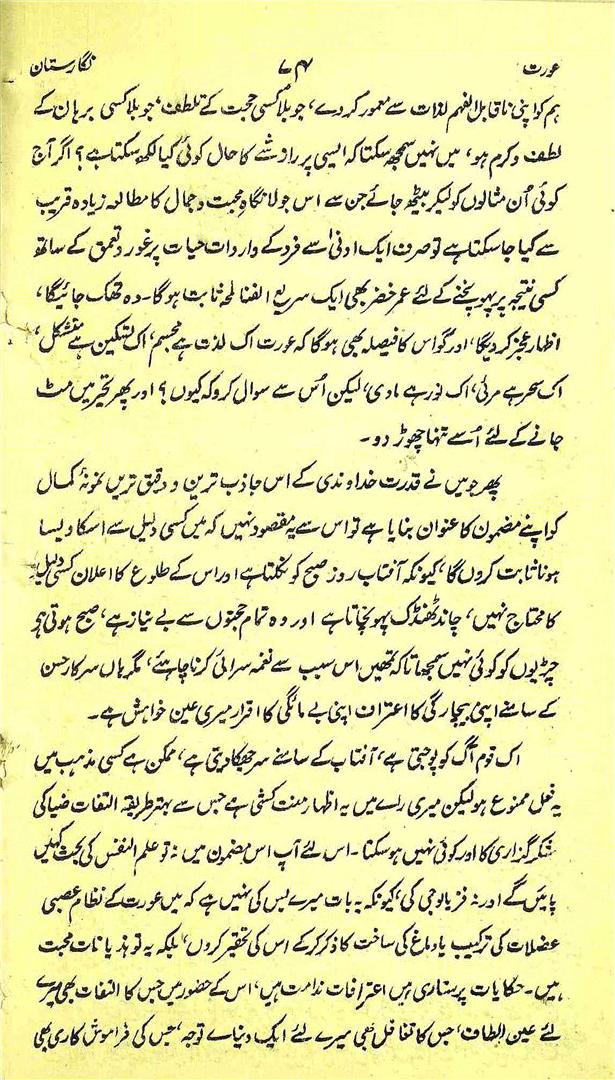 عورت ۷۴ نگارستان
ہم کو اپنی ناقابل الفہم لذات سے معمور کر دے، جو بلا کسی حجت کے تلطف، جو بلا کسی برہان کے
لطف و کرم ہو، میں نہیں سمجھ سکتا کہ ایسی پر راز شے کا حال کوئی کیا لکھ سکتا ہے؟ اگر آج
کوئی اُن مثالوں کو لیکر بیٹھ جائے جن سے اس جولانگاہِ محبت و جمال کا مطالعہ زیادہ قریب
سے کیا جا سکتا ہے تو صرف ایک ادنیٰ سے فرد کے واردات حیات پر غور و تعمق کے ساتھ
کسی نتیجہ پر پہونچنے کے لئے عمر خضر بھی ایک سریع الفنا لمحہ ثابت ہوگا۔ وہ تھک جائیگا،
اظہار عجز کر دیگا، اور گو اس کا فیصلہ بھی ہوگا کہ عورت اک لذت ہے مجسم، اک تسکین ہے متشکل،
اک سحر ہے مرئی، اک نور ہے مادی، لیکن اُس سے سوال کرو کہ کیوں؟ اور پھر تحیر میں مٹ
جانے کے لئے اُسے تنہا چھوڑ دو۔
پھر جو میں نے قدرت خداوندی کے اس جاذب ترین و دقیق ترین نمونۂ کمال
کو اپنے مضمون کا عنوان بنایا ہے تو اس سے یہ مقصود نہیں کہ میں کسی دلیل سے اسکا ویسا
ہونا ثابت کروں گا، کیونکہ آفتاب روز صبح کو نکلتا ہے اور اس کے طلوع کا اعلان کسی دلیل
کا محتاج نہیں، چاند ٹھنڈک پہونچاتا ہے اور وہ تمام حجتوں سے بے نیاز ہے، صبح ہوتی ہو
چڑیوں کو کوئی نہیں سمجھاتا کہ تمھیں اس سبب سے نغمہ سرائی کرنا چاہئے، مگر ہاں سرکار حسن
کے سامنے اپنی بیچارگی کا اعتراف اپنی بے مائگی کا اقرار میری عین خواہش ہے۔
اک قوم آگ کو پوجتی ہے، آفتاب کے سامنے سر جھکا دیتی ہے، ممکن ہے کسی مذہب میں
یہ فعل ممنوع ہو لیکن میری رائے میں یہ اظہار منت کشی ہے جس سے بہتر طریقہ التفات ضیا کی
شکر گزاری کا اور کوئی نہیں ہو سکتا۔ اس لئے آپ اس مضمون میں نہ تو علم النفس کی بحث کہیں
پائیں گے اور نہ فزیالوجی کی، کیونکہ یہ بات میرے بس کی نہیں ہے کہ میں عورت کے نظام عصبی
عضلات کی ترکیب یا دماغ کی ساخت کا ذکر کر کے اس کی تحقیر کروں، بلکہ یہ تو ہذیانات محبت
ہیں۔ حکایات پرستاری ہیں اعترافات ندامت ہیں، اس کے حضور میں جس کا التفات بھی میرے
لئے عین الطاف، جس کا تغافل بھی میرے لئے ایک دنیاے توجہ، جس کی فراموش کاری بھی